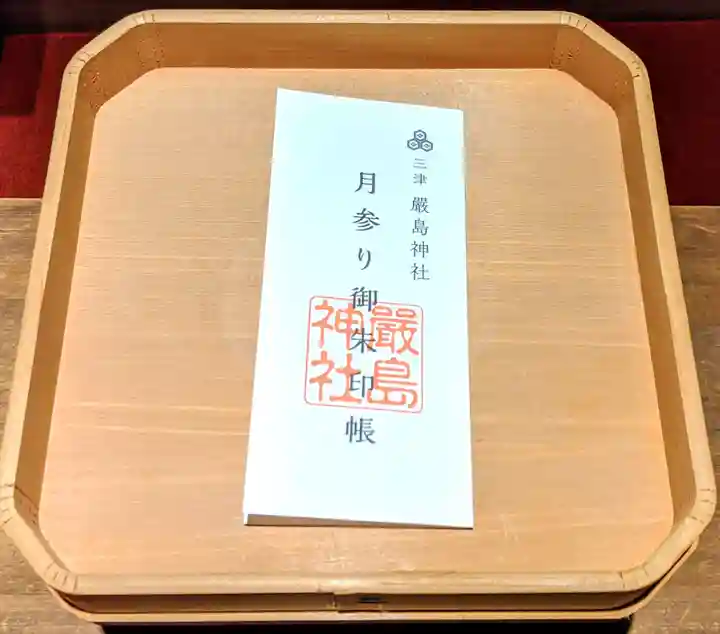 三津 嚴島神社
月参り御朱印帳
嚴島
神社